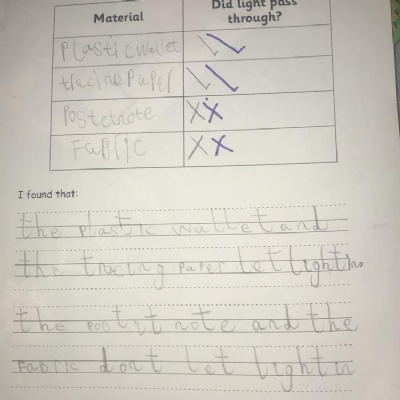 Material Did light pass through?
Plasticwallet
tracinePaper
Postetnote
FaBric
I found that:
the plastic wallet and
the tracing paper let light in
the postit note and the
FaBRIC dont let light in